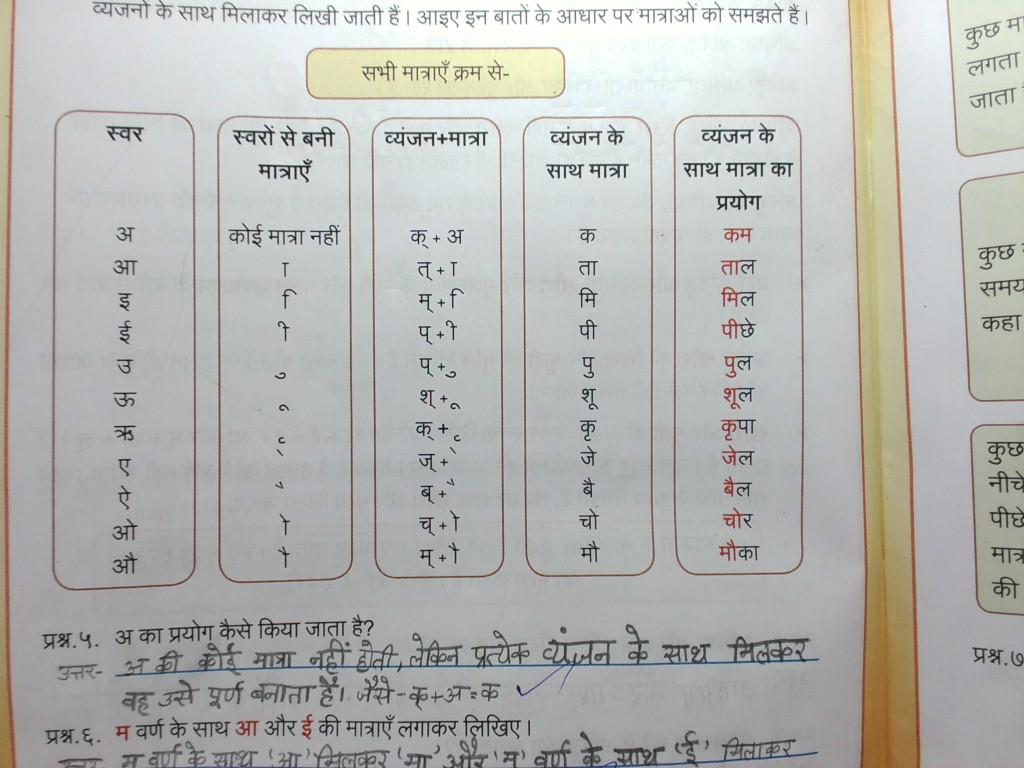 व्यजनों के साथ मिलाकर लिखी जाती हैं। आइए इन बातों के आधार पर मात्राओं को समझते हैं।
सभी मात्राएँ क्रम से-
स्वर स्वरों से बनी मात्राएँ व्यंजन+मात्रा व्यंजन के साथ मात्रा व्यंजन के साथ मात्रा का प्रयोग
अ कोई मात्रा नहीं क् + अ क कम
आ ा त् + ा ता ताल
इ ि म् + ि मि मिल
ई ी प् + ी पी पीछे
उ ु प् + ु पु पुल
ऊ ू श् + ू शू शूल
ऋ ृ क् + ृ कृ कृपा
ए े ज् + े जे जेल
ऐ ै ब् + ै बै बैल
ओ ो च् + ो चो चोर
औ ौ म् + ौ मौ मौका
प्रश्न.५. अ का प्रयोग कैसे किया जाता है?
उत्तर- अ की कोई मात्रा नहीं होती, लेकिन प्रत्येक व्यंजन के साथ मिलकर
वह उसे पूर्ण बनाता है। जैसे - क् + अ = क
प्रश्न.६. म वर्ण के साथ आ और ई की मात्राएँ लगाकर लिखिए।
उत्तर- म वर्ण के साथ 'आ' मिलकर 'मा' और 'म' वर्ण के साथ 'ई' मिलाकर
कुछ
लगता
जाता
कुछ
समय
कहा
कुछ
नीचे
पीछे
मात्र
की
प्रश्न.७